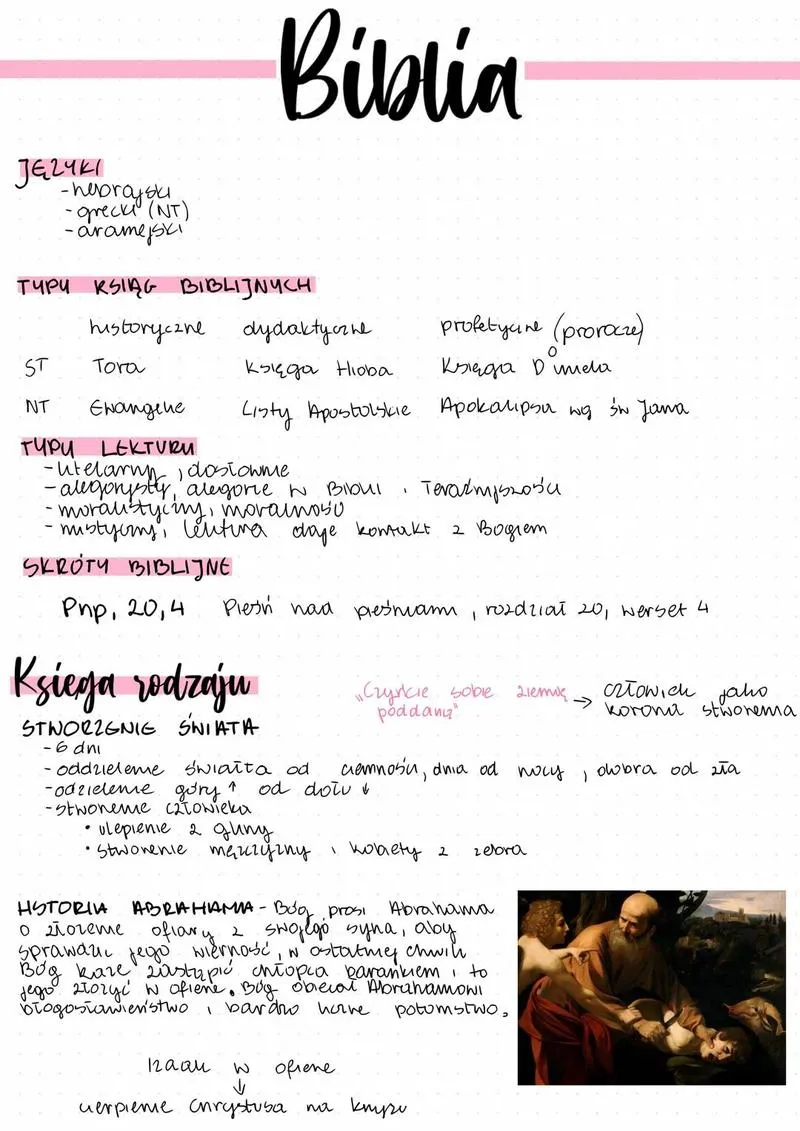 Biblia
JĘZYKI
- hebrajski
- grecki (NT)
- aramejski
TYPY KSIĄG BIBLIJNYCH
historyczne dydaktyczne profetyczne (prorocze)
ST Tora Księga Hioba Księga Daniela
NT Ewangelie Listy Apostolskie Apokalipsa wg św Jana
TYPY LEKTURY
- literarny, dosłownie
- alegorysty, alegorie w Biblii i Teraźniejszości
- moralistyczny, moralność
- mistyczny, lektura daje kontakt z Bogiem
SKRÓTY BIBLIJNE
Pnp, 20,4 Pieśń nad pieśniami, rozdział 20, werset 4
Księga rodzaju
"Czyńcie sobie ziemię poddaną" → człowiek jako
korona stworzenia
STWORZENIE ŚWIATA
- 6 dni
- oddzielenie światła od ciemności, dnia od nocy, dobra od zła
- odzielenie góry ↑ od dołu ↓
- stworzenie człowieka
• ulepienie z gliny
• stworzenie mężczyzny i kobiety z żebra
HISTORIA ABRAHAMA - Bóg prosi Abrahama
o złożenie ofiary z swojego syna, aby
sprawdzić jego wierność, w ostatniej chwili
Bóg każe zastąpić chłopca barankiem i to
jego złożyć w ofierze. Bóg obiecał Abrahamowi
błogosławieństwo i bardzo liczne potomstwo.
Izaak w ofierze
↓
cierpienie Chrystusa na krzyżu